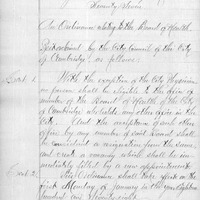 Seventy Seven
An Ordinance relating to the Board of Health.
Be it ordained by the City Council of the City
of Cambridge as follows:
Sect. 1. With the exception of the City Physician
no person shall be eligible to the office of
member of the Board of Health of the City of
Cambridge who holds any other office in the
City. And the acceptance of any other
office by any member of said Board shall
be considered a resignation from the same,
and create a vacancy which shall be
filled by a new appointment.
Sect. 2. This Ordinance shall take effect on the
first Monday of January in the year eighteen
hundred and Seventy eight.